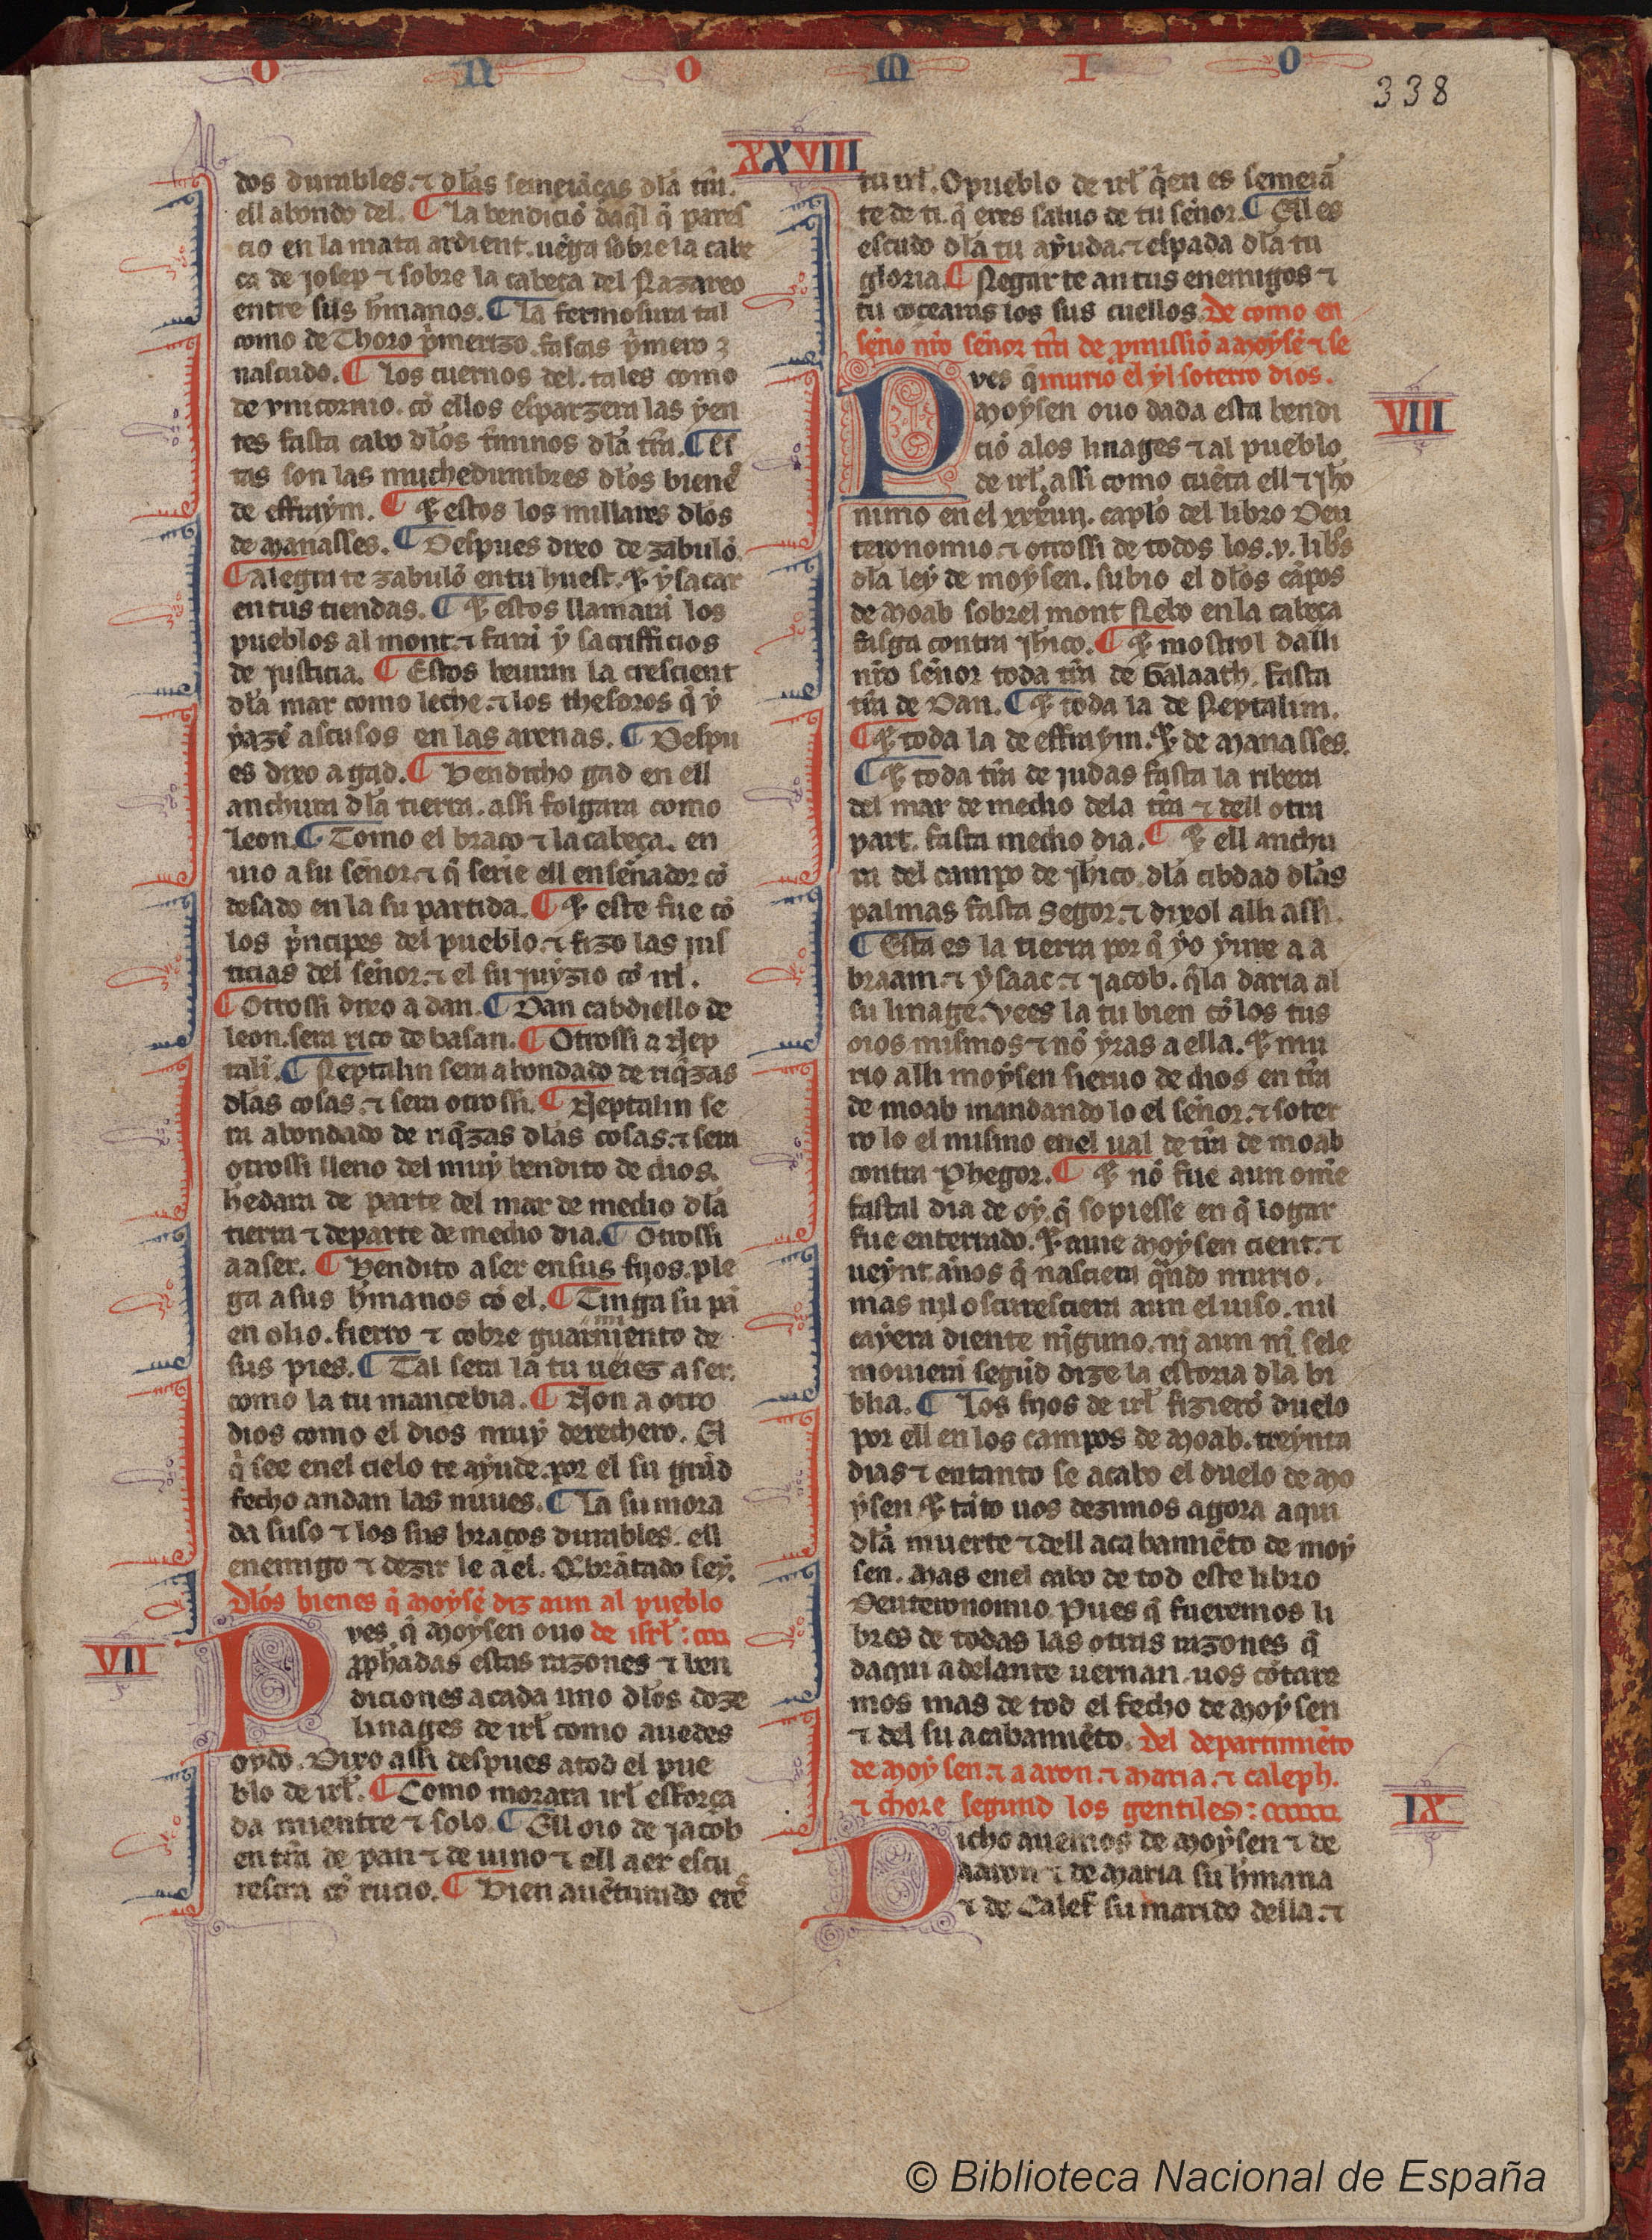 O N O M I O
338
XXVIII
dos durables. ⁊ dłas semeiãças dła tr̃a.
ell abondo del. ¶ La bendiciõ daq̃l q̃ pares
cio en la mata ardient. uẽga sobre la cabe
ça de josep ⁊ sobre la cabeça del Nazareo
entre sus hr̃manos. ¶ La fermosura tal
como de Thoro p̃merizo. fascas p̃mero
nascudo. ¶ Los cuernos del. tales como
de vnicornio. cõ ellos esparzera las yen
tes fasta cabo dłos t̃minos dła tr̃a. ¶ Es
tas son las muchedumbres dłos bienes
de effraym. ¶ ⁊ estos los millares dłos
de Manasses. ¶ Despues dixo de zabulõ.
¶ Alegra te zabulõ en tu huest. ⁊ ysacar
en tus tiendas. ¶ ⁊ estos llamarã los
pueblos al mont. ⁊ farã y sacrifficios
de justicia. ¶ Estos beuran la crescient
dła mar como leche. ⁊ los thesoros q̃ y
yazẽ ascusos en las arenas. ¶ Despu
es dixo a gad. ¶ Bendicho gad en ell
anchura dła tierra. assi folgara como
Leon. ¶ Tomo el braço ⁊ la cabeça. en
uio a su señor. ⁊ q̃ serie ell enseñador cõ
desado en la su partida. ¶ ⁊ este fue cõ
los p̃ncipes del pueblo. ⁊ fizo las jus
ticias del señor. ⁊ el su juyzio cõ irł.
¶ Otrossi dixo a dan. ¶ Dan cabdiello de
leon. sera rico de basan. ¶ Otrossi a Nep
tali. ¶ Neptalin sera abondado de riq̃zas
dłas cosas. ⁊ sera otrossi. ¶ Neptalin se
ra abondado de riq̃zas dłas cosas. ⁊ sera
otrossi lleno del muy bendito de dios.
heredara de parte del mar de medio dła
tierra ⁊ de parte de medio dia. ¶ Otrossi
a aser. ¶ Bendito aser en sus fijos. ple
ga a sus hr̃manos cõ el. ¶ Tinga su pã
en olio. fierro ⁊ cobre guarnimiento de
sus pies. ¶ Tal sera la tu ueiez aser.
como la tu mancebia. ¶ Non a otro
dios como el dios muy derechero. El
q̃ see en el cielo te ayude. por el su grãd
fecho andan las nuues. ¶ La su mora
da suso ⁊ los sus braços durables. ell
enemigo ⁊ dezir le a el. Q̃brãtado sey.
Dłos bienes q̃ Moysẽ diz aun al pueblo
VII
Pves q̃ Moysen ouo de isrł:
p̃phadas estas razones ⁊ ben
diciones a cada uno dłos doze
linages de irł como auedes
oydo. Dixo assi despues a tod el pue
blo de irł. ¶ Como morara irł esforça
da mientre ⁊ solo. ¶ Ell oio de jacob
en tr̃a de pan ⁊ de uino ⁊ ell aer escu
rescra cõ rucio. ¶ Bien auẽturado eres
tu irł. O pueblo de irł q̃en es semeiã
te de ti. q̃ eres saluo de tu señor. ¶ Ell es
escudo dła tu ayuda. ⁊ espada dła tu
gloria. ¶ Negar te an tus enemigos ⁊
tu cocearas los sus cuellos. De como en
seño nr̃o señor tr̃a de p̃missiõ a Moysẽ ⁊ se
VIII
Pves q̃ murio el yl soterro dios.
Moysen ouo dada esta bendi
ciõ a los linages ⁊ al pueblo
de irł. assi como cuẽta ell ⁊ jh̃o
nimo en el xxxiiij. capł̃o del libro Deu
teronomio. ⁊ otrossi de todos los .v. lib̃s
dła ley de moysen. subio el dłos cãpos
de Moab sobrel mont Nebo en la cabeça
fasga contra jh̃ico. ¶ ⁊ mostrol dalli
nr̃o señor toda tr̃a de Galaath. fasta
tr̃a de Dan. ¶ ⁊ toda la de Neptalim.
¶ ⁊ toda la de effraym. ⁊ de Manasses.
¶ ⁊ toda tr̃a de judas fasta la ribera
del mar de medio de la tr̃a ⁊ dell otra
part. fasta medio dia. ¶ ⁊ ell anchu
ra del campo de jh̃ico. dła cibdad dłas
palmas fasta Segor. ⁊ dixol alli assi.
¶ Esta es la tierra por q̃ yo yure a a
braam. ⁊ ysaac. ⁊ jacob. q̃ la daria al
su linage. vees la tu bien cõ los tus
oios mismos ⁊ nõ yras a ella. ⁊ mu
rio alli moysen sieruo de dios en tr̃a
de moab mandando lo el señor. ⁊ soter
ro lo el mismo en el ual de tr̃a de moab
contra Phegor. ¶ ⁊ nõ fue aun om̃e
fastal dia de oy. q̃ sopiesse en q̃ logar
fue enterrado. ⁊ auie Moysen cient. ⁊
ueynt. años q̃ nasciera q̃ndo murio.
mas nil oscuresciera aun el uiso. nil
cayera diente ninguno. nj aun nj sele
mouiera segũd dize la estoria dła bi
blia. ¶ Los fijos de irł fizierõ duelo
por ell en los campos de Moab. treynta
dias ⁊ en tanto se acabo el duelo de Mo
ysen ⁊ tãto uos dezimos agora aqui
dła muerte ⁊ dell acabamiẽto de moy
sen. Mas en el cabo de tod este libro
Deuteronomio. Pues q̃ fueremos li
bres de todas las otras razones q̃
daqui adelante uernan. uos cõtare
mos mas de tod el fecho de Moysen
⁊ del su acabamiẽto. Del departimiẽto
de Moysen. ⁊ aaron. ⁊ Maria. ⁊ caleph.
⁊ chore segund los gentiles:
IX
Dicho auemos de Moysen ⁊ de
aaron ⁊ de Maria su hr̃mana
⁊ de Calef su marido della. ⁊
© Biblioteca Nacional de España